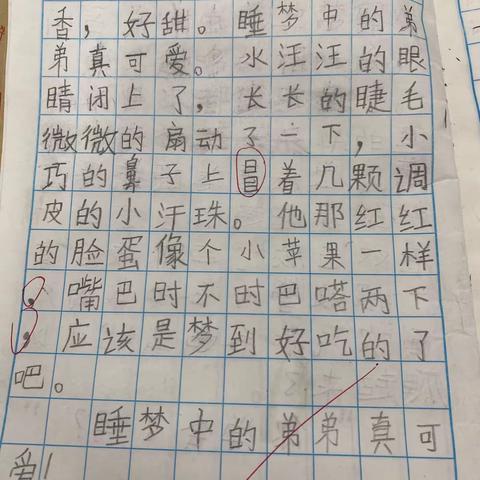 香，好甜。睡梦中的弟
弟真可爱。水汪汪的眼
睛闭上了，长长的睫毛
微微的扇动了一下，小
巧的鼻子上冒着几颗调
皮的小汗珠。他那红红
的脸蛋像个小苹果一样
，嘴巴时不时巴嗒两下
，应该是梦到好吃的了
吧。
睡梦中的弟弟真可
爱！